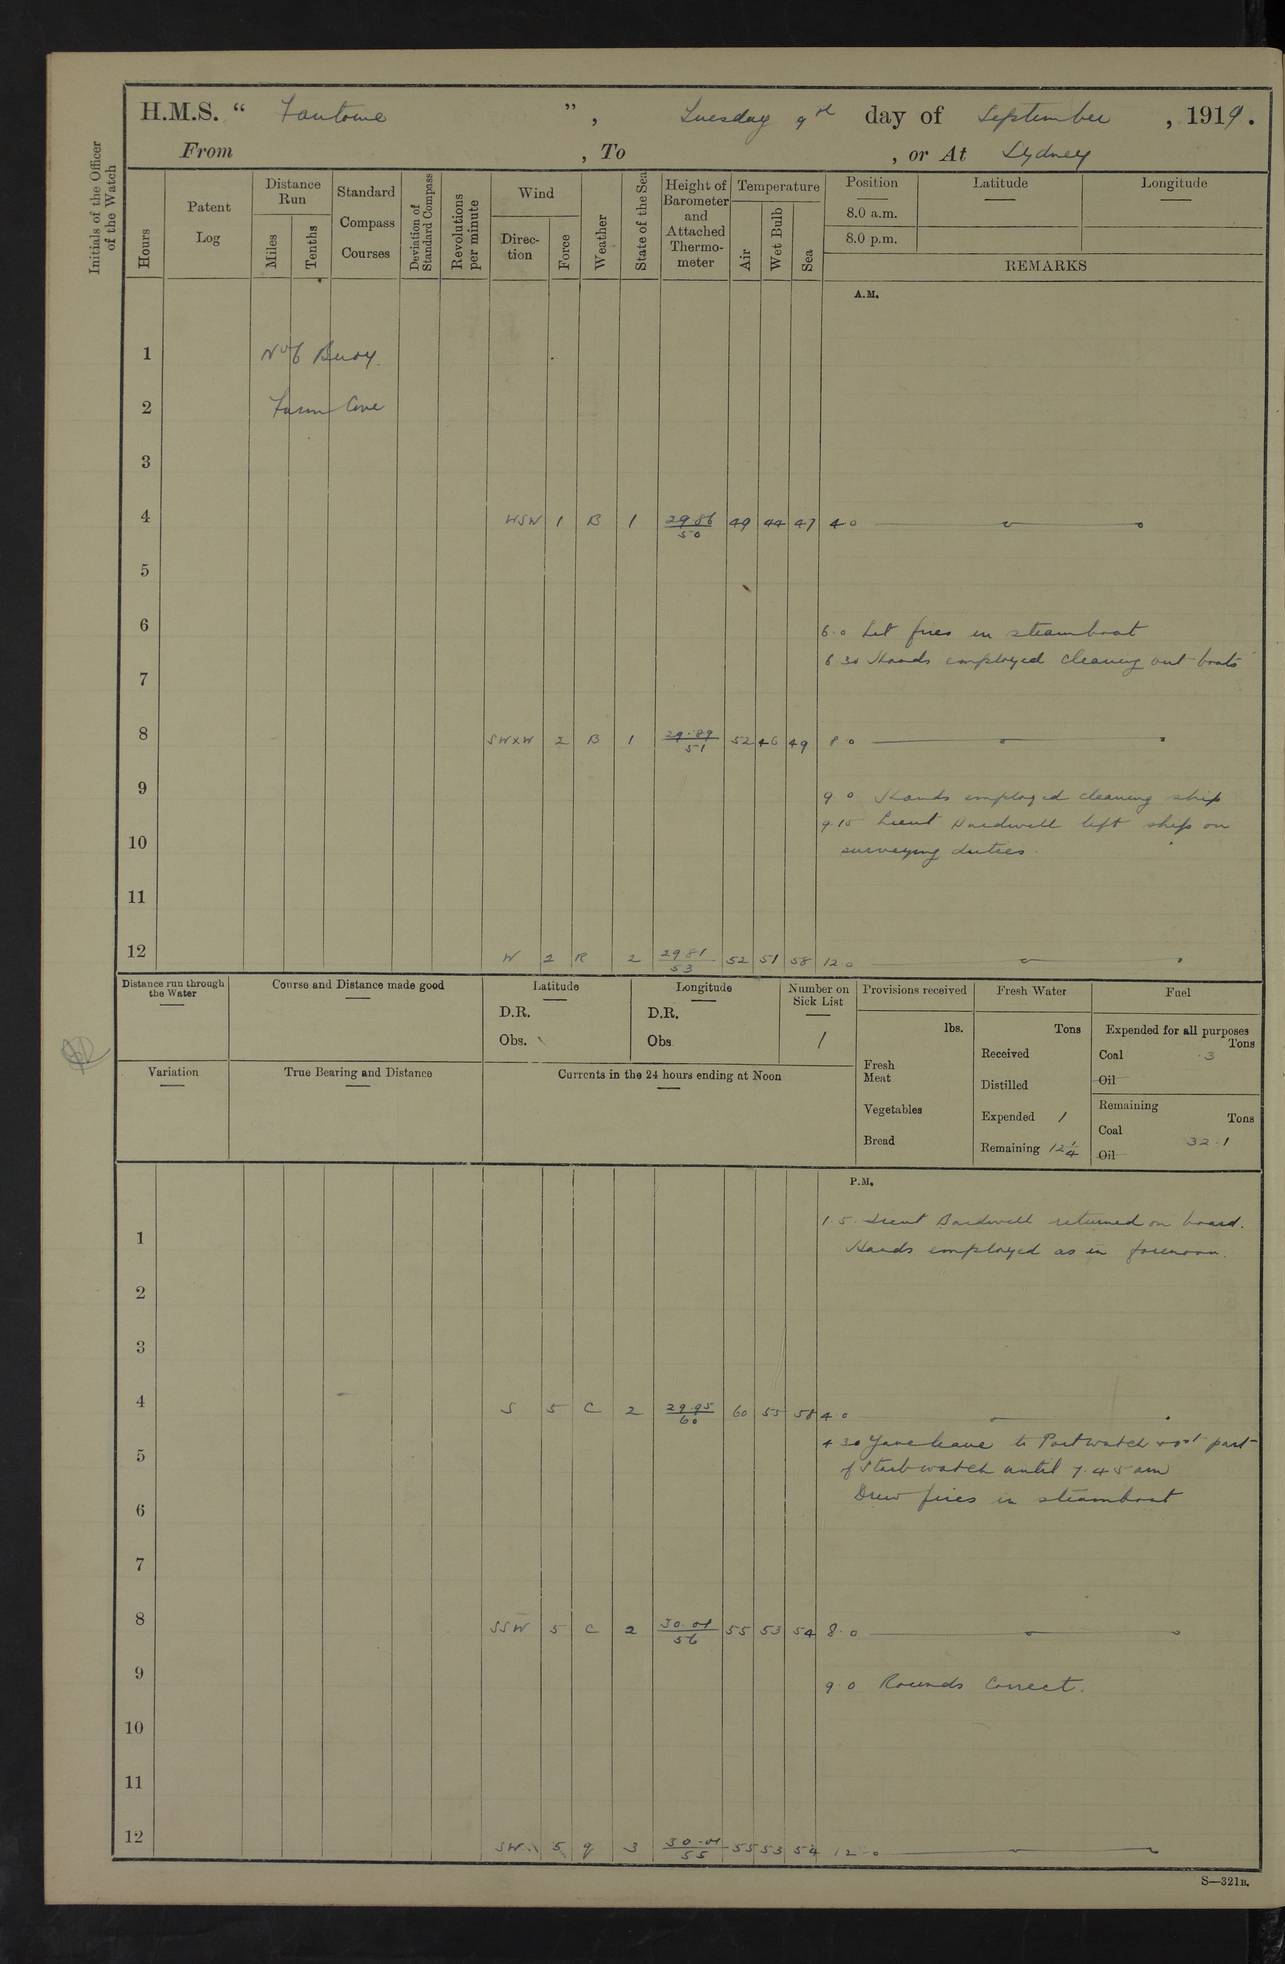 H.M.S. “ Fantome ”, Tuesday 9th day of September, 1919.
From , To , or At Sydney
Initials of the Officer of the Watch
Hours
Patent Log
Distance Run
Miles
Tenths
Standard Compass Courses
Deviation of Standard Compass
Revolutions per minute
Wind
Direc-tion
Force
Weather
State of the Sea
Height of Barometer and Attached Thermo-meter
Temperature
Air
Wet Bulb
Sea
Position Latitude Longitude
8.0 a.m.
8.0 p.m.
REMARKS
A.M.
1 No 6 Buoy.
2 Farm Cove
3
4 WSW 1 B 1 29.86/50 49 44 47 4 0
5
6 6.0 Lit fires in steamboat
6 30 Hands employed cleaning out boats
7
8 SWxW 2 B 1 29.89/51 52 46 49 8 0
9 9 0 Hands employed cleaning ship
9.15 Lieut Bardwell left ship on
10 surveying duties.
11
12 W 2 R 2 29 81/53 52 51 58 12 0
Distance run through the Water
Course and Distance made good
Latitude
D.R.
Obs.
Longitude
D.R.
Obs
Number on Sick List
1
Provisions received
lbs.
Fresh Meat
Vegetables
Bread
Fresh Water
Tons
Received
Distilled
Expended 1
Remaining 12 1/4
Fuel
Expended for all purposes
Tons
Coal .3
Oil
Remaining
Tons
Coal 32.1
Oil
Variation
True Bearing and Distance
Currents in the 24 hours ending at Noon
P.M.
1.5. Lieut Bardwell returned on board.
1 Hands employed as in forenoon.
2
3
4 S 5 C 2 29.95/60 60 55 58 4 0
4 30 Gave leave to Port watch & 1st part
5 of Starb watch until 7.45 am
Drew fires in steamboat
6
7
8 SSW 5 C 2 30.01/56 55 53 54 8.0
9 9.0 Rounds Correct.
10
11
12 SW 5 q 3 30.01/55 55 53 54 12.0
S—321B.